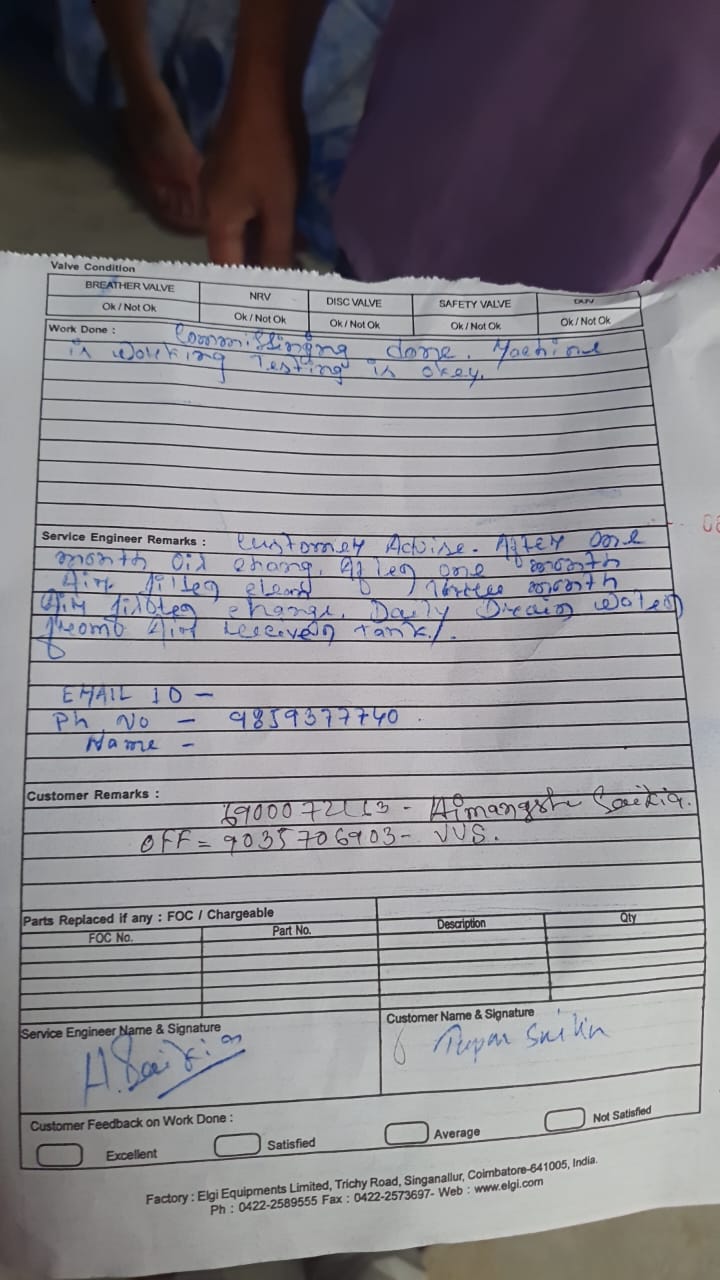 Valve Condition
BREATHER VALVE NRV DISC VALVE SAFETY VALVE
Ok / Not Ok Ok / Not Ok Ok / Not Ok Ok / Not Ok Ok / Not Ok
Work Done : Commissinging done. Machine
is working Testing is okey.
Service Engineer Remarks : Customer Advise. After one
month Oil chang. After one month
Air filter clean month
Air filter change. Daily Drain water
Air receiver tank.
EMAIL ID -
Ph No - 9859377740
Name -
Customer Remarks :
Himangshu Saikia.
OFF = 9035706903 - VVS.
Parts Replaced if any : FOC / Chargeable
FOC No. Part No. Description Qty
Service Engineer Name & Signature Customer Name & Signature
H. Saikia
Customer Feedback on Work Done :
Excellent Satisfied Average Not Satisfied
Factory : Elgi Equipments Limited, Trichy Road, Singanallur, Coimbatore-641005, India.
Ph : 0422-2589555 Fax : 0422-2573697- Web : www.elgi.com